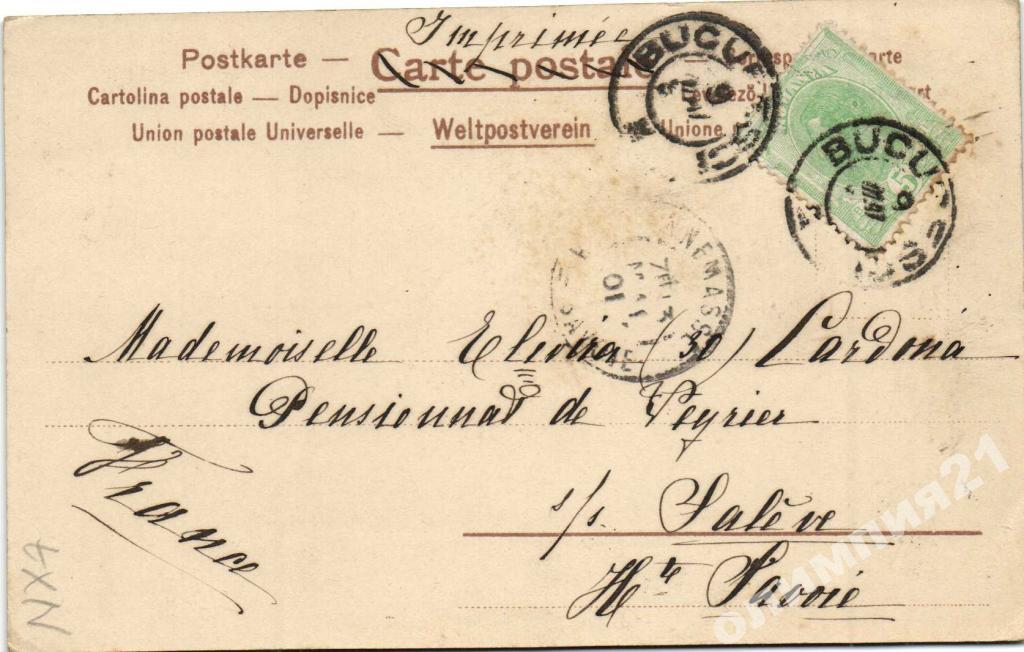 Imprimée
Postkarte — Carte postale
Cartolina postale — Dopisnice
Union postale Universelle — Weltpostverein Unione
BUCUR
BUCU
5
ANNEMASSE
01
Mademoiselle Elvira (30) Cardona
Pensionnat de Veyrier
s/s. Salève
Hte Savoie
France
NX4
олимпия21